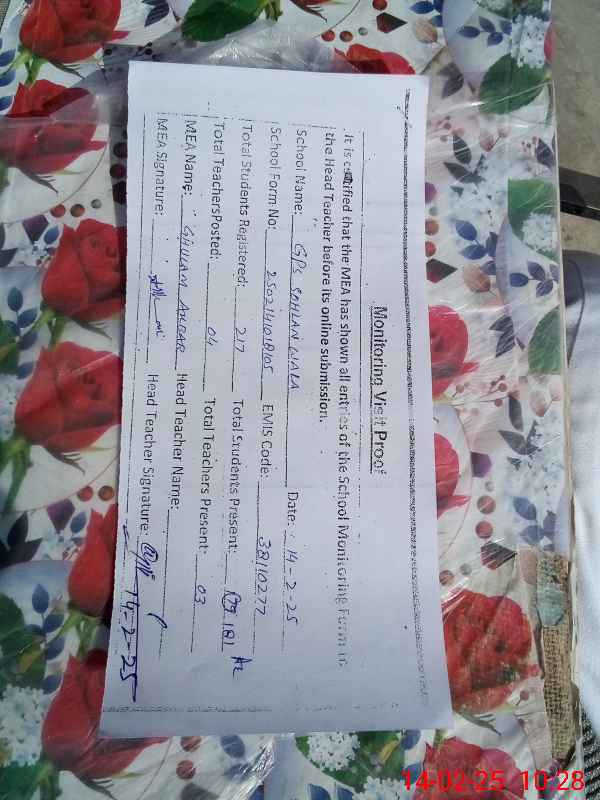 Monitoring Visit Proof
It is certified that the MEA has shown all entries of the School Monitoring Form to
the Head Teacher before its online submission.
School Name: GPS SOHLAN WALA Date: 14-2-25
School Form No: 2502141018105 EMIS Code: 38110277
Total Students Registered: 217 Total Students Present: 181
Total TeachersPosted: 04 Total Teachers Present: 03
MEA Name: GHULAM Head Teacher Name:
MEA Signature: Head Teacher Signature: 14-2-25
14-02-25 10:28